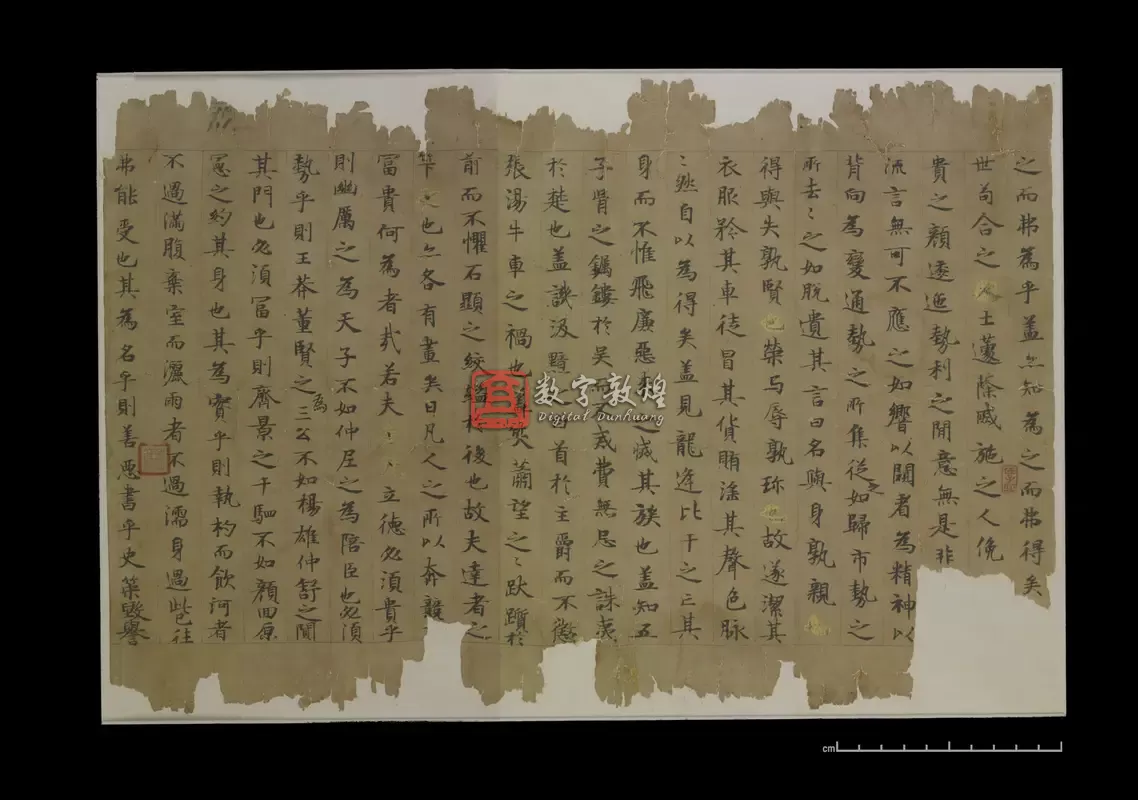 之而弗為乎盖亦知為之而弗得矣
世苟合之士蘧蒢戚施之人俛
貴之顏逶迤勢利之間意無是非
流言無可不應之如響以闚者為精神以
背向為變通勢之所集從之如歸市勢之
所去々之如脫遺其言曰名與身孰親
得與失孰賢也榮与辱孰珎也故遂潔其
衣服矜其車徒冒其貨賄淫其聲色脉
々然自以為得矣盖見龍逢比干之亡其
身而不惟飛廉惡来之滅其族也盖知五
子胥之鐲鏤於吳而戒費無忌之誅夷
於楚也盖譏汲黯首於主爵而不懲
張湯牛車之禍也笑蕭望之々跋躓於
前而不懼石顯之絞縊於後也故夫達者之
筭也亦各有盡矣曰凡人之所以奔競
冨貴何為者哉若夫立德必須貴乎
則幽厲之為天子不如仲尼之為陪臣也必須
勢乎則王莽董賢之為三公不如楊雄仲舒之閴
其門也必須冨乎則齊景之千駟不如顏回原
憲之約其身也其為實乎則執杓而飲河者
不過滿腹棄室而灑雨者不過濡身過此以往
弗能受也其為名乎則善惡書乎史筞毀譽
数字敦煌
Digital Dunhuang
cm